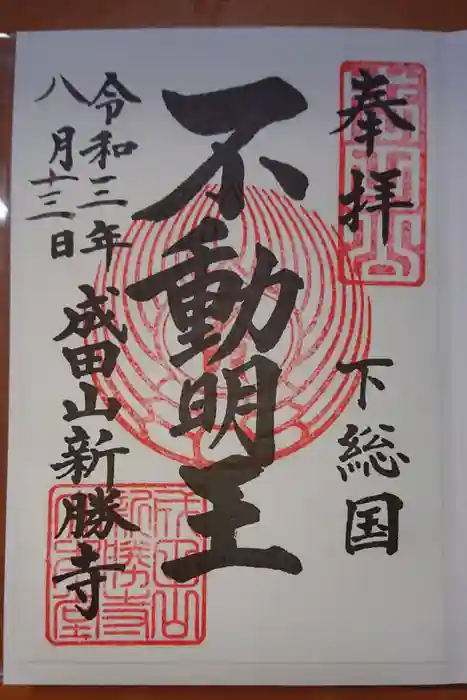 奉拝
下総国
不動明王
令和三年
八月十三日
成田山新勝寺